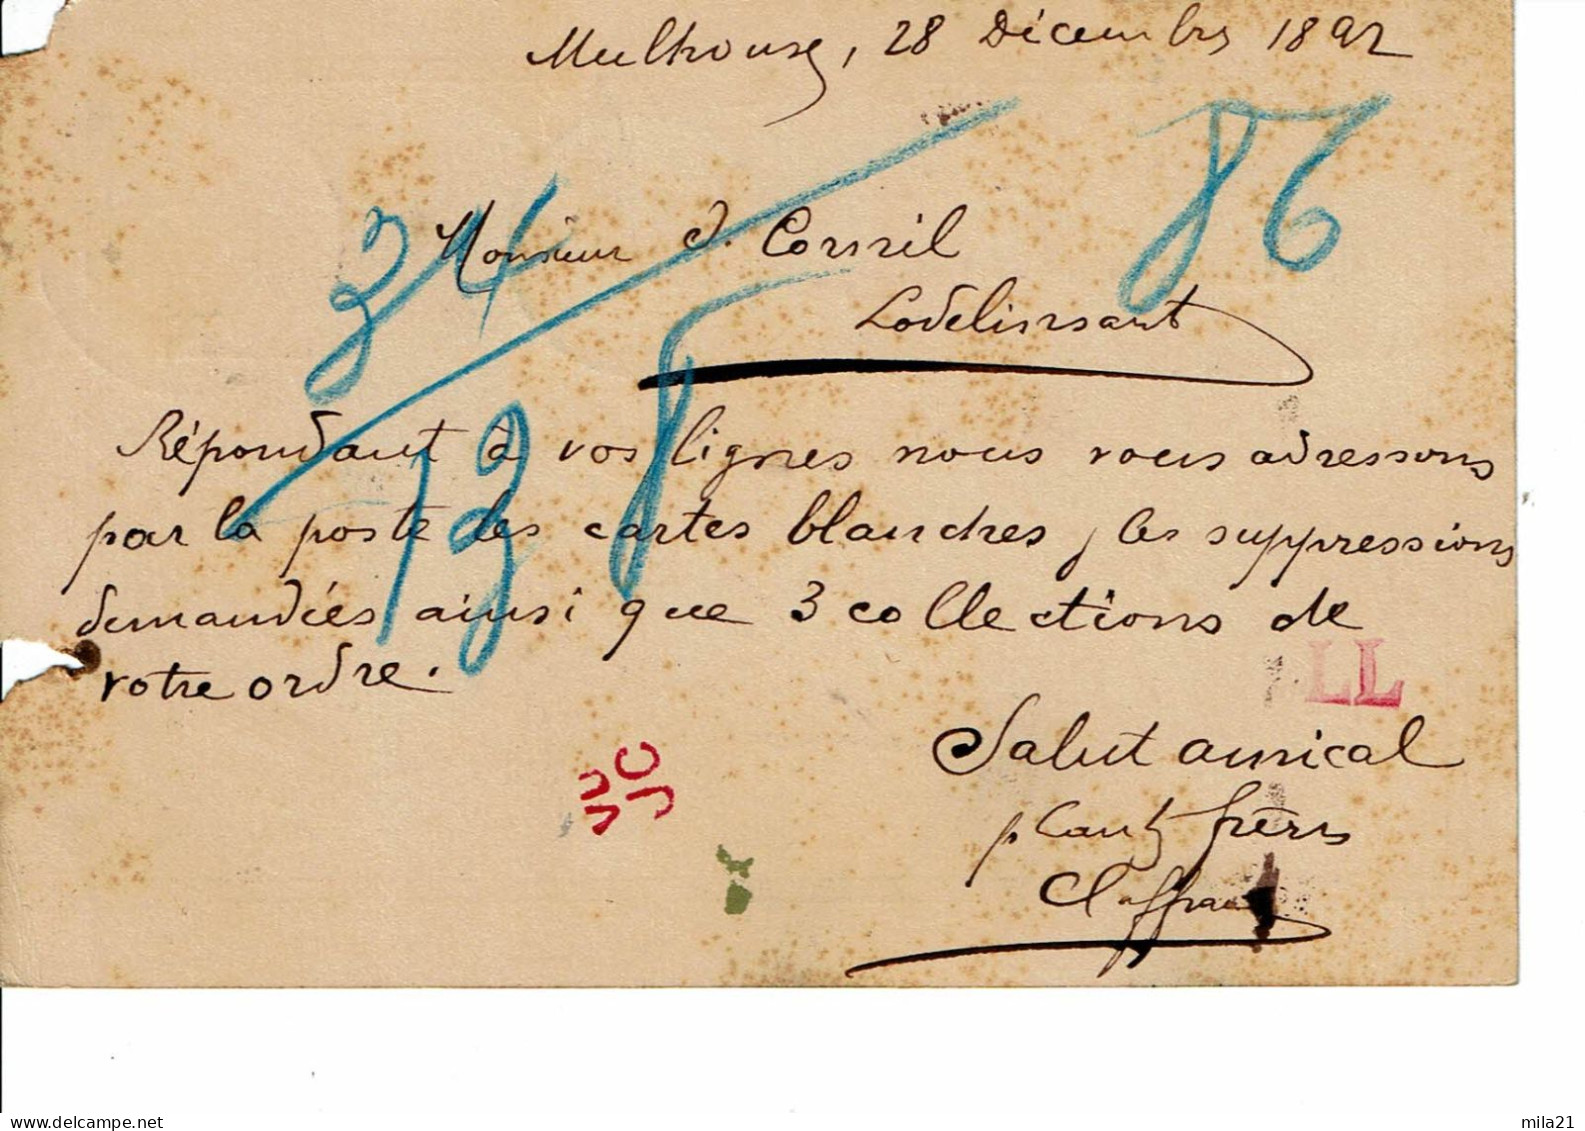 Mulhouse, 28 Décembre 1892
86
34
Monsieur J. Cornil
Lodelinsart
128
Répondant à vos lignes nous vous adressons
par la poste des cartes blanches, les suppressions
demandées ainsi que 3 collections de
votre ordre.
LL
VU
JC
Salut amical
p frères
delcampe.net
mila21